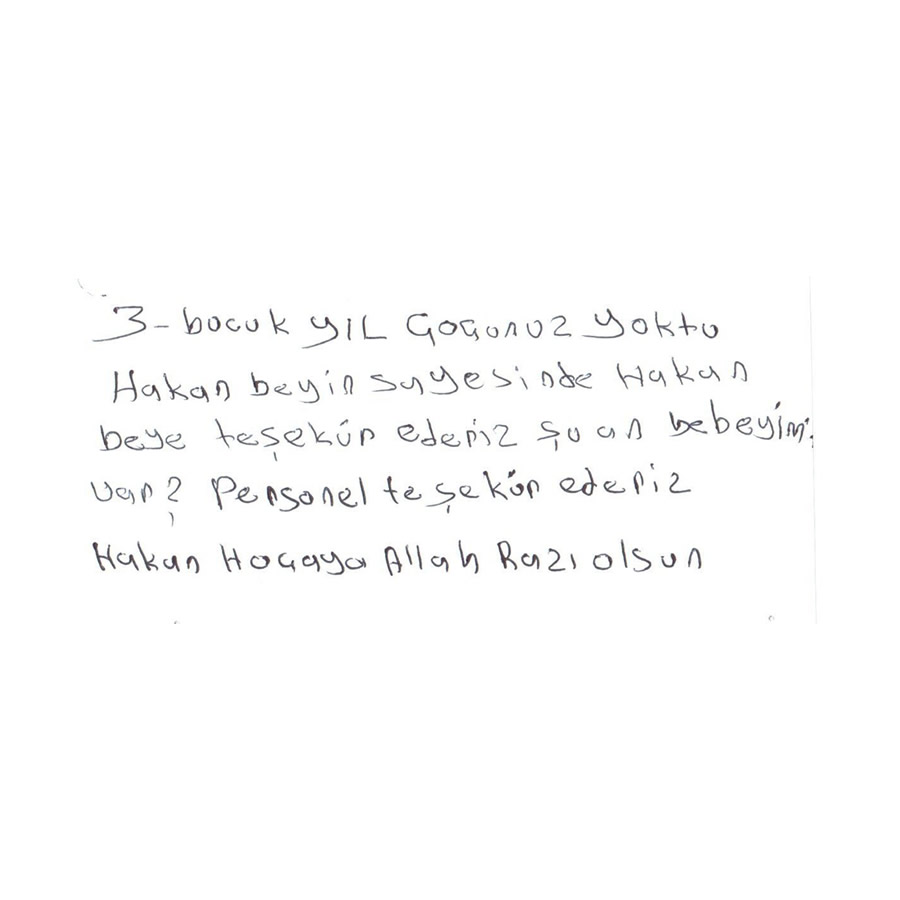 3- bocuk yIL GoGonuz yoktu
Hakan beyin sayesinde Hakan
beye teşekür ederiz şu an bebeyim.
var? Personel teşekür ederiz
Hakan Hocaya Allah Razı olsun